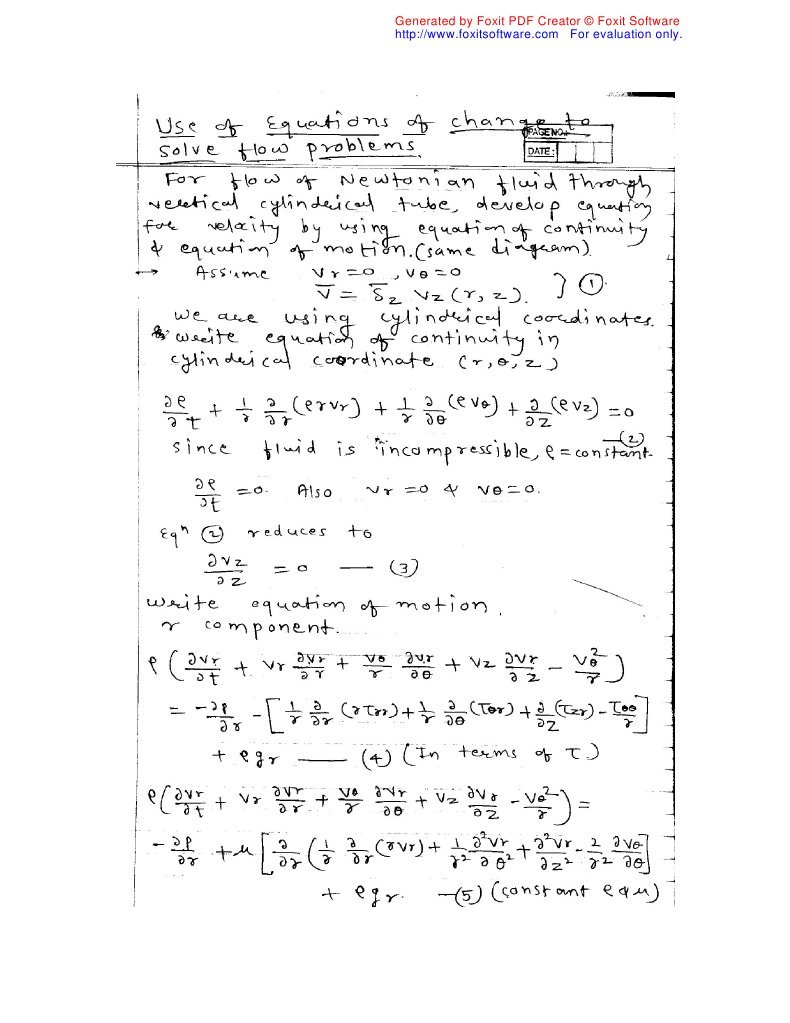 Generated by Foxit PDF Creator © Foxit Software
http://www.foxitsoftware.com For evaluation only.
Use of Equations of change to
solve flow problems.
PAGE NO.:
DATE:
For flow of Newtonian fluid through
vertical cylindrical tube, develop equation
for velocity by using equation of continuity
& equation of motion. (same diagram)
→ Assume Vr=0, Vθ=0
V̅ = δ̅z Vz(r, z). } ①
we are using cylindrical coordinates.
write equation of continuity in
cylindrical coordinate (r, θ, z)
∂ρ/∂t + 1/r ∂/∂r (ρrVr) + 1/r ∂/∂θ (ρVθ) + ∂/∂z (ρVz) = 0
—(2)
since fluid is incompressible, ρ = constant.
∂ρ/∂t = 0. Also Vr = 0 & Vθ = 0.
Eqⁿ ② reduces to
∂Vz/∂z = 0 — (3)
write equation of motion.
r component.
ρ(∂Vr/∂t + Vr ∂Vr/∂r + Vθ/r ∂Vr/∂θ + Vz ∂Vr/∂z - Vθ²/r)
= -∂p/∂r - [1/r ∂/∂r (rτrr) + 1/r ∂/∂θ (τθr) + ∂/∂z (τzr) - τθθ/r]
+ ρgr — (4) (In terms of τ.)
ρ(∂Vr/∂t + Vr ∂Vr/∂r + Vθ/r ∂Vr/∂θ + Vz ∂Vr/∂z - Vθ²/r) =
-∂p/∂r + μ[∂/∂r (1/r ∂/∂r (rVr) + 1/r² ∂²Vr/∂θ² + ∂²Vr/∂z² - 2/r² ∂Vθ/∂θ]
+ ρgr. —(5) (constant ρ & μ)